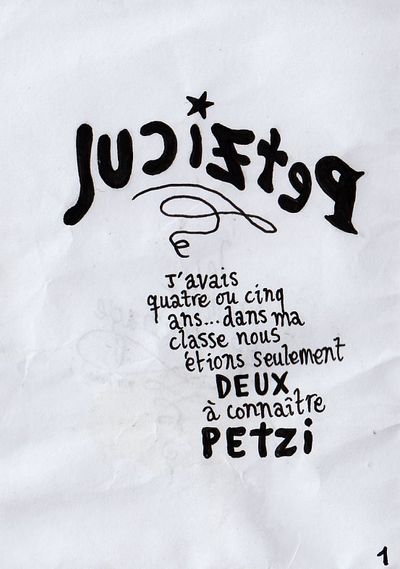 PetZicul
J'avais
quatre ou cinq
ans... dans ma
classe nous
étions seulement
DEUX
à connaître
PETZi
1